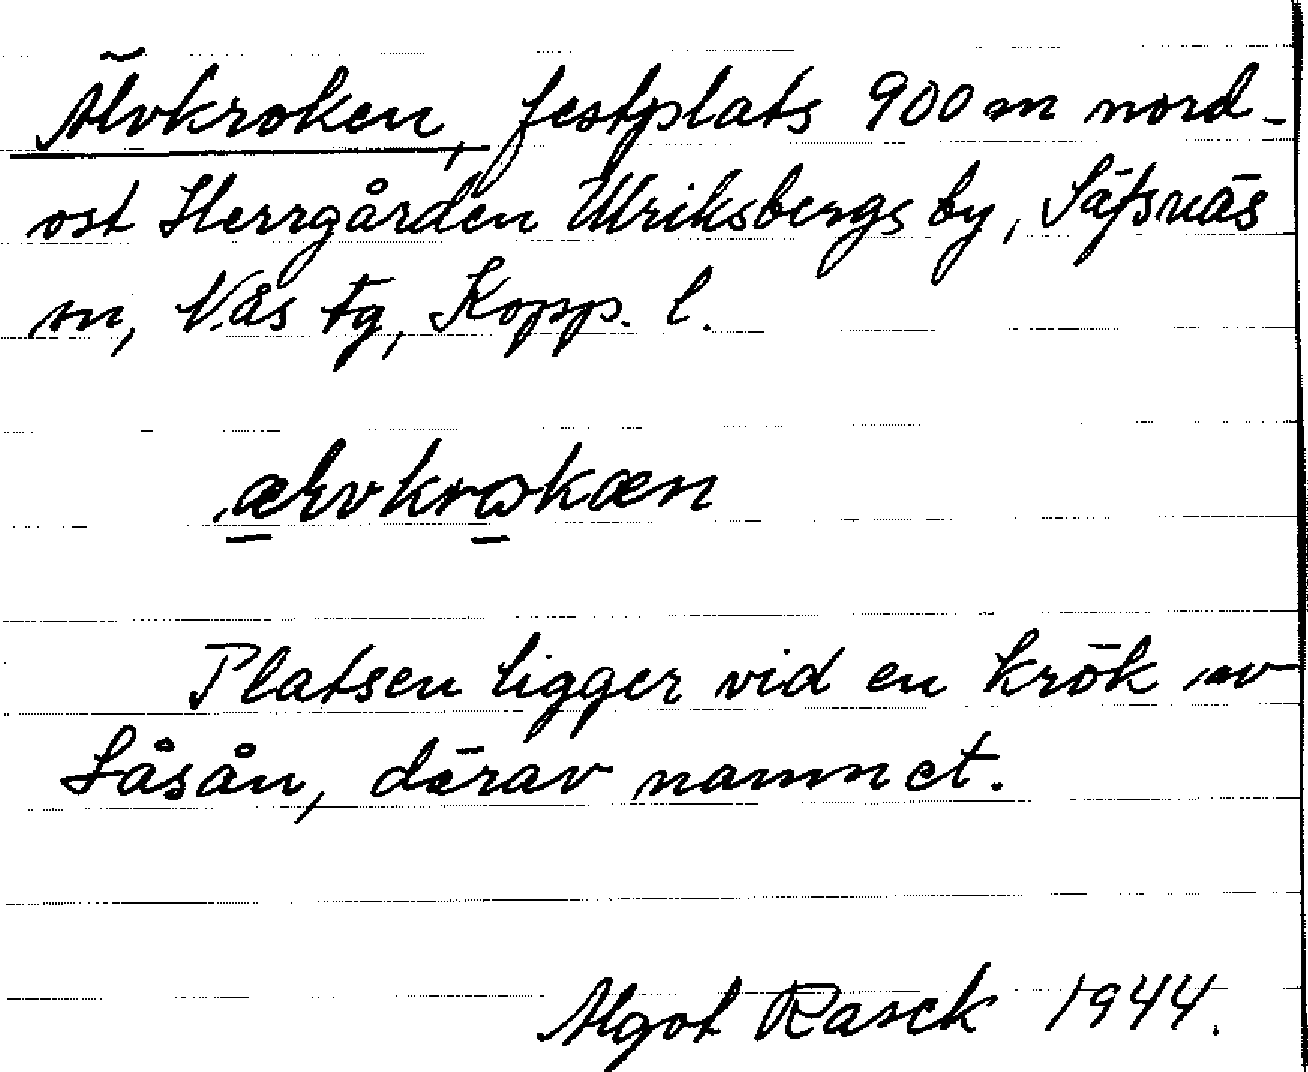 Älvkroken, festplats 900 m nord-
ost Herrgården Ulriksbergs by, Säfsnäs
sn, Nås tg, Kopp. l.
Platsen ligger vid en krök av
Såsån, därav namnet.
Algot Rasck 1944.